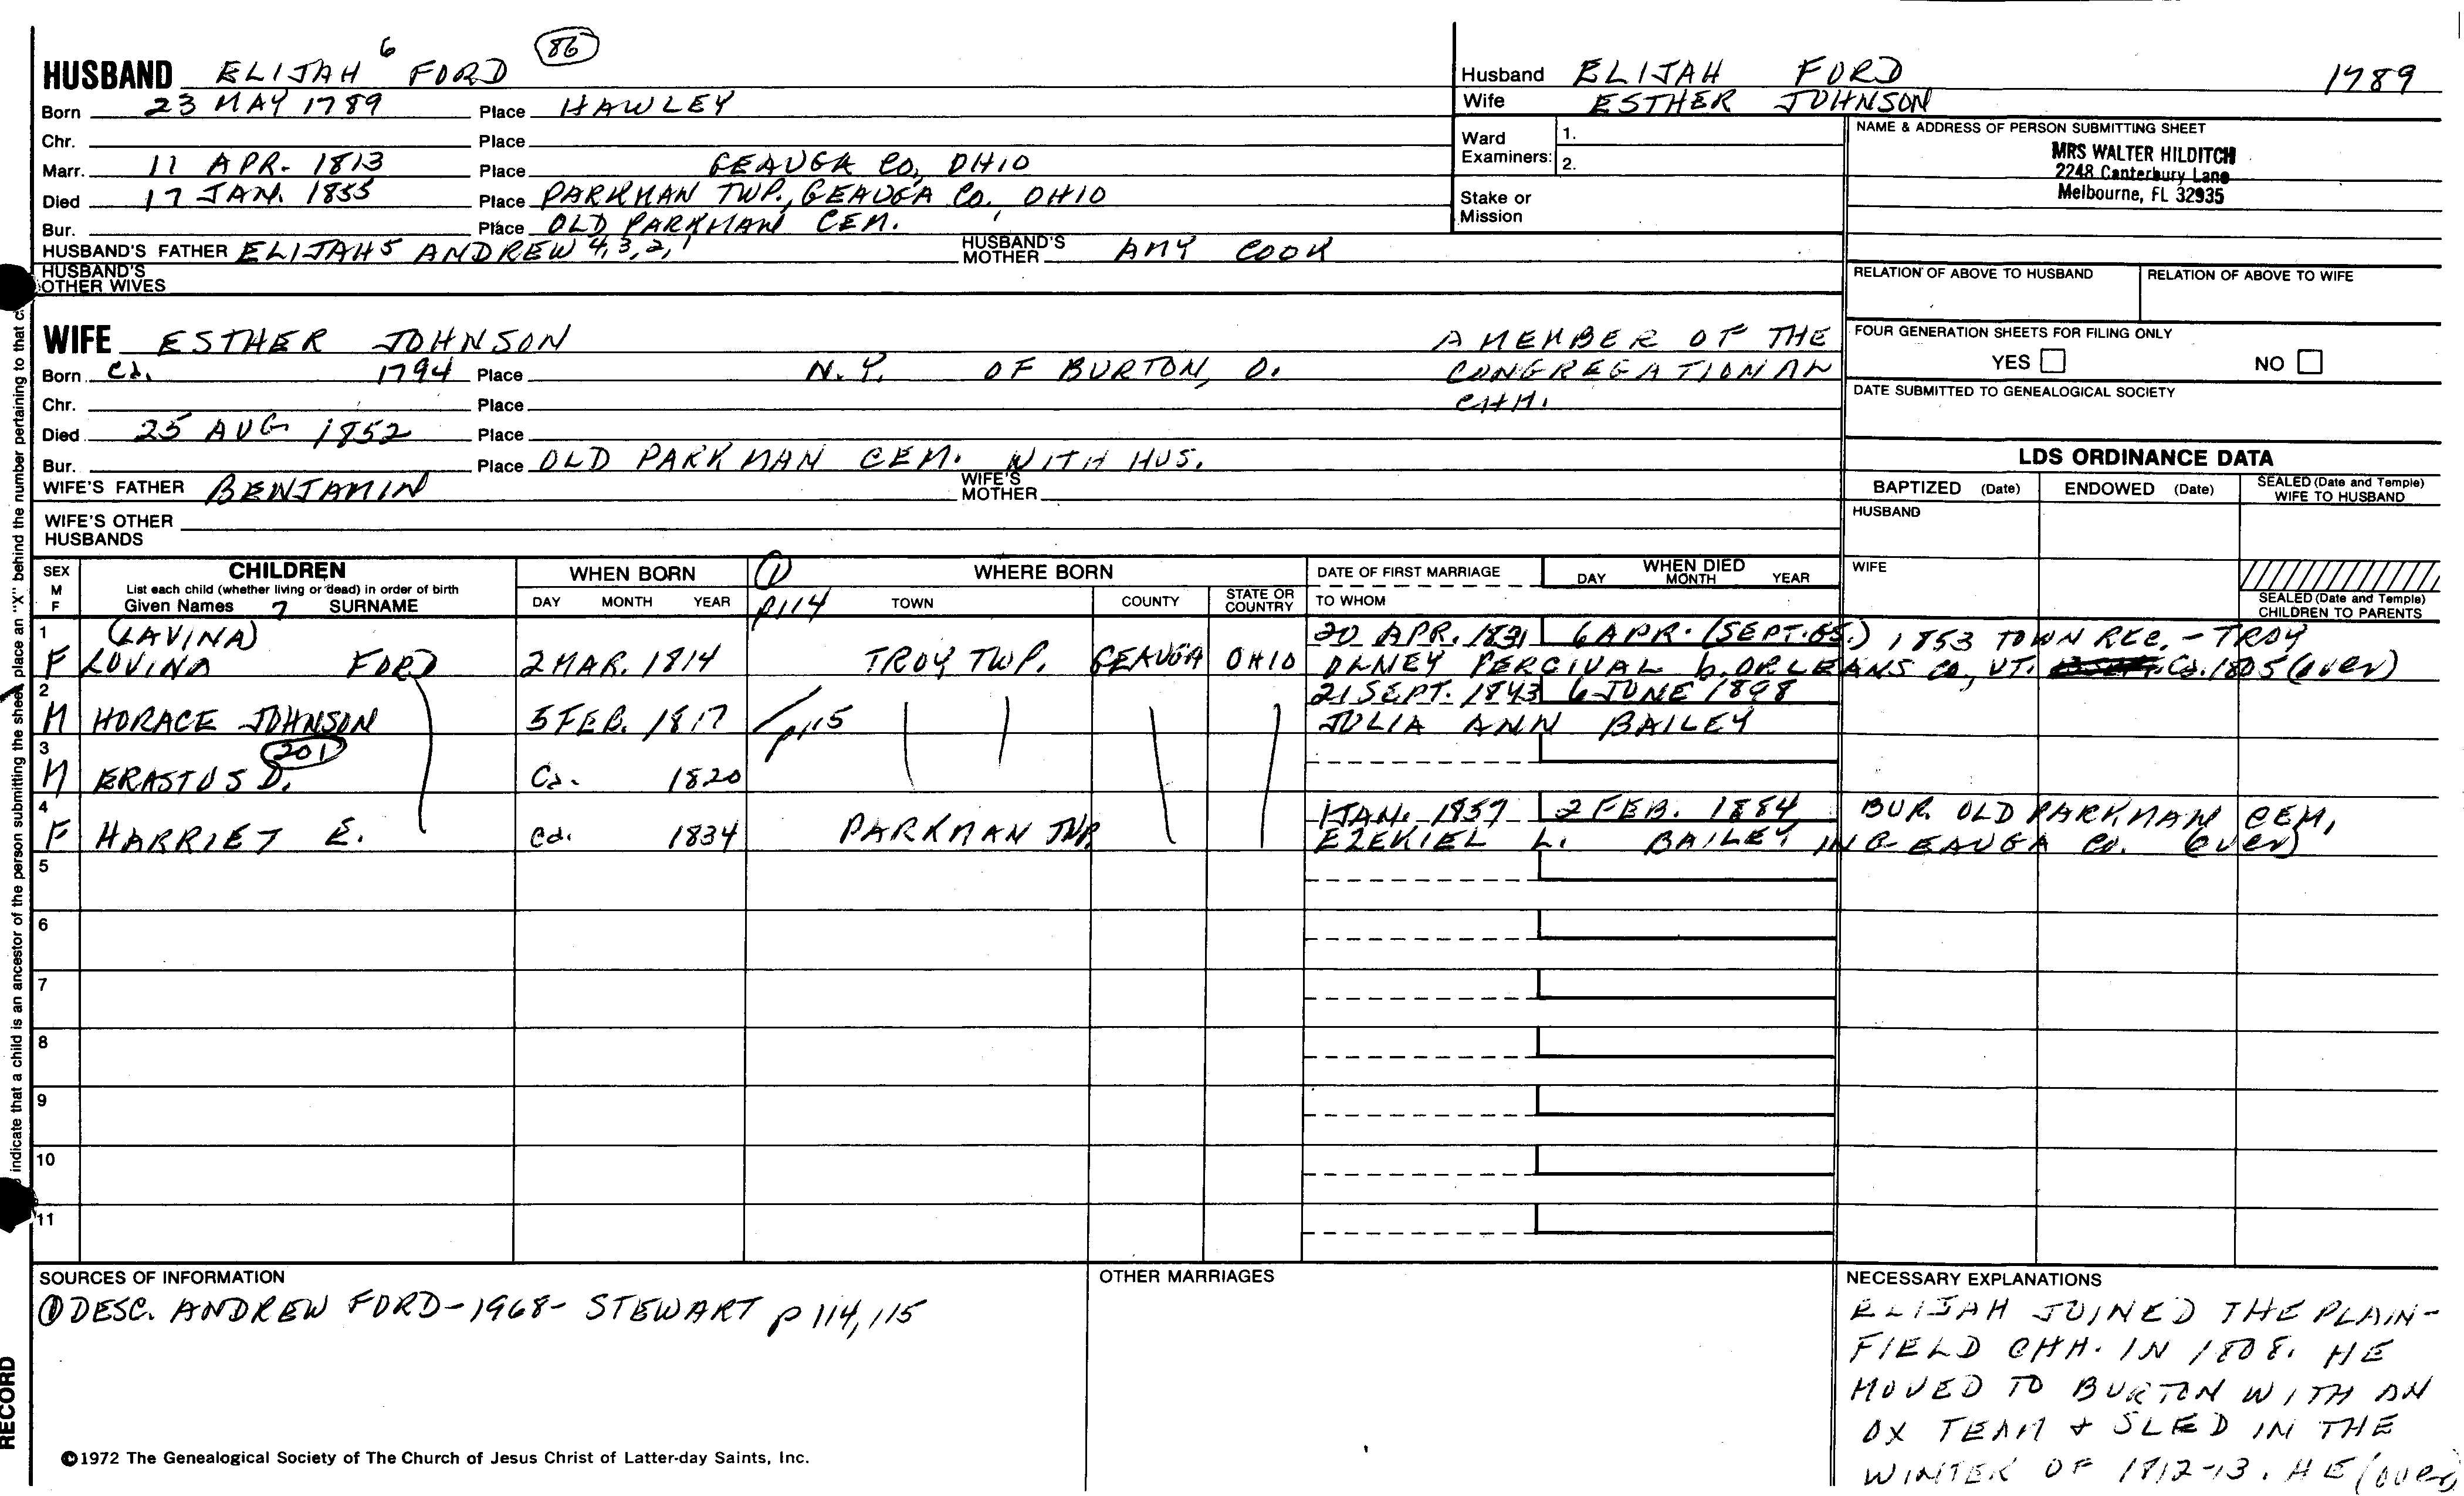 HUSBAND ELIJAH 6 FORD 86
Born 23 MAY 1789 Place HAWLEY
Chr. Place
Marr. 11 APR. 1813 Place GEAUGA CO, OHIO
Died 17 JAN. 1855 Place PARKMAN TWP., GEAUGA CO. OHIO
Bur. Place OLD PARKMAN CEM.
HUSBAND'S FATHER ELIJAH5 ANDREW 4,3,2,1 HUSBAND'S MOTHER AMY COOK
HUSBAND'S OTHER WIVES
Husband ELIJAH FORD 1789
Wife ESTHER JOHNSON
Ward Examiners: 1.
2.
Stake or Mission
NAME & ADDRESS OF PERSON SUBMITTING SHEET
MRS WALTER HILDITCH
2248 Canterbury Lane
Melbourne, FL 32935
RELATION OF ABOVE TO HUSBAND RELATION OF ABOVE TO WIFE
WIFE ESTHER JOHNSON A MEMBER OF THE
Born Ca. 1794 Place N.Y. OF BURTON, O. CONGREGATIONAL
Chr. Place CHH.
Died 25 AUG 1852 Place
Bur. Place OLD PARKMAN CEM. WITH HUS.
WIFE'S FATHER BENJAMIN WIFE'S MOTHER
WIFE'S OTHER HUSBANDS
FOUR GENERATION SHEETS FOR FILING ONLY
YES NO
DATE SUBMITTED TO GENEALOGICAL SOCIETY
LDS ORDINANCE DATA
BAPTIZED (Date) ENDOWED (Date) SEALED (Date and Temple) WIFE TO HUSBAND
HUSBAND
WIFE
SEALED (Date and Temple) CHILDREN TO PARENTS
SEX M F
CHILDREN
List each child (whether living or dead) in order of birth
Given Names 7 SURNAME
WHEN BORN
DAY MONTH YEAR
1 p114
WHERE BORN
TOWN COUNTY STATE OR COUNTRY
DATE OF FIRST MARRIAGE
TO WHOM
WHEN DIED
DAY MONTH YEAR
1 (LAVINA) 20 APR. 1831 6 APR. (SEPT. G.S.) 1853 TOWN REC. - TROY
F LOVINA FORD 2 MAR. 1814 TROY TWP. GEAUGA OHIO OLNEY PERCIVAL b. ORLEANS CO., VT. Ca. 1805 (over)
2 21 SEPT. 1843 6 JUNE 1898
M HORACE JOHNSON 5 FEB. 1817 p115 JULIA ANN BAILEY
3 201
M ERASTUS D. Ca. 1820
4 1 JAN. 1857 2 FEB. 1884 BUR. OLD PARKMAN CEM,
F HARRIET E. Ca. 1834 PARKMAN TWP. EZEKIEL L. BAILEY IN GEAUGA CO. (over)
5
6
7
8
9
10
11
SOURCES OF INFORMATION
1 DESC. ANDREW FORD-1968- STEWART p 114, 115
OTHER MARRIAGES
NECESSARY EXPLANATIONS
ELIJAH JOINED THE PLAIN-
FIELD CHH. IN 1808. HE
MOVED TO BURTON WITH AN
OX TEAM & SLED IN THE
WINTER OF 1812-13. HE (over)
©1972 The Genealogical Society of The Church of Jesus Christ of Latter-day Saints, Inc.
indicate that a child is an ancestor of the person submitting the sheet, place an "X" behind the number pertaining to that
RECORD